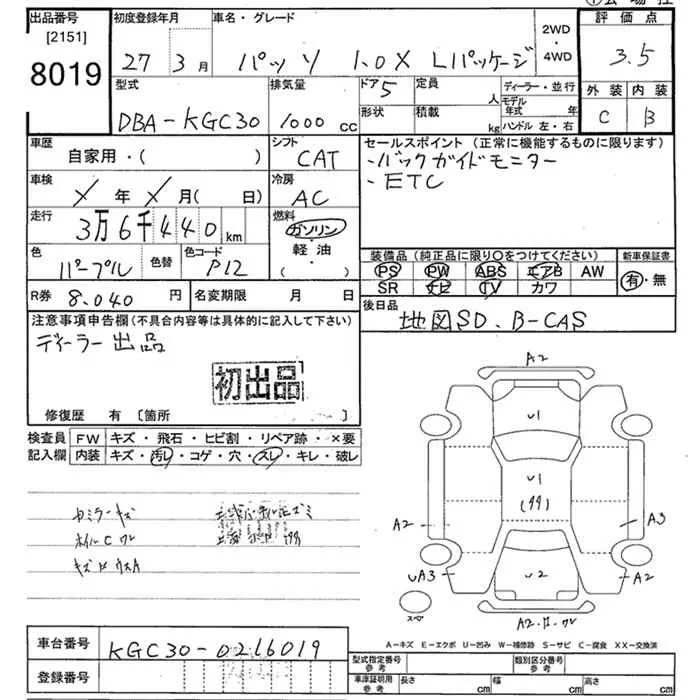 出品番号
[2151]
8019
初度登録年月 車名・グレード
27 3月 パッソ 1.0X Lパッケージ
2WD
・
4WD
評価点
3.5
外装 内装
C B
型式 排気量 ドア 定員 ディーラー・並行
DBA-KGC30 1000 cc 5 人 モデル年式 年
形状 積載 kg ハンドル 左・右
車歴 シフト
自家用・( ) CAT
セールスポイント (正常に機能するものに限ります)
・バックガイドモニター
・ETC
車検 冷房
年 月( 日) AC
走行 燃料
3万6千440 km ガソリン
軽油
( )
色 色替 色コード
パープル P12
装備品 (純正品に限り○をつけてください) 新車保証書
PS PW ABS エアB AW 有・無
SR ナビ TV カワ
R券 8,040 円 名変期限 月 日
後日品
地図SD、B-CAS
注意事項申告欄 (不具合内容等は具体的に記入して下さい)
ディーラー出品
初出品
修復歴 有 [箇所 ]
検査員 FW キズ・飛石・ヒビ割・リペア跡・×要
記入欄 内装 キズ・汚レ・コゲ・穴・スレ・キレ・破レ
A2
U1
U1
A2 A3
UA3 U2 A2
スペア
A2
A-キズ E-エクボ U-凹み W-補修跡 S-サビ C-腐食 XX-交換済
車台番号 KGC30-0216019
登録番号
型式指定番号 参考 類別区分番号 参考
車庫証明用 参考 長さ cm 幅 cm 高さ cm